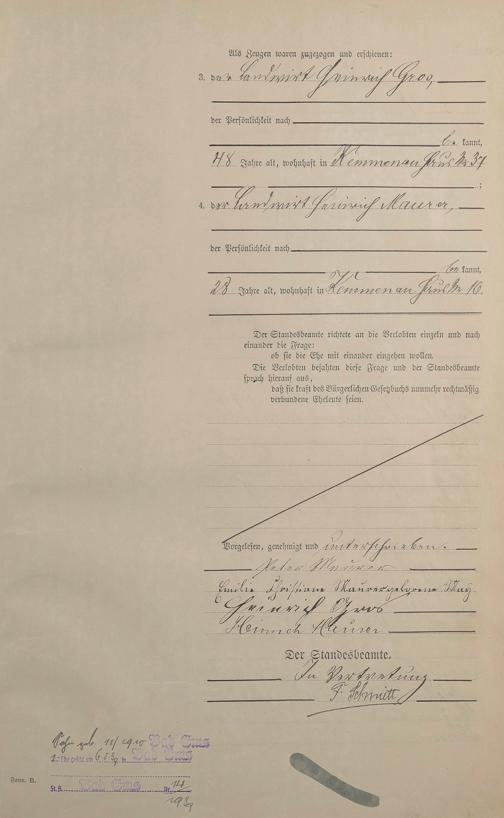 Als Zeugen waren zugezogen und erschienen:
3. der Landwirt Heinrich Gros,
der Persönlichkeit nach
be kannt,
48 Jahre alt, wohnhaft in Kemmenau Haus Nr. 37
;
4. der Landwirt Heinrich Maurer,
der Persönlichkeit nach
be kannt,
28 Jahre alt, wohnhaft in Kemmenau Haus Nr. 10.
Der Standesbeamte richtete an die Verlobten einzeln und nach
einander die Frage:
ob sie die Ehe mit einander eingehen wollen.
Die Verlobten bejahten diese Frage und der Standesbeamte
sprach hierauf aus,
daß sie kraft des Bürgerlichen Gesetzbuchs nunmehr rechtmäßig
verbundene Eheleute seien.
Vorgelesen, genehmigt und unterschrieben.
Peter Maurer
Emilie Christiane Maurer geborene May
Heinrich Gros
Heinrich Maurer
Der Standesbeamte.
In Vertretung
F. Schmitt
geb. 11/1910 Bad Ems
1. Ehe in Bad Ems
St.A. Bad Ems Nr. 14
Form. B.